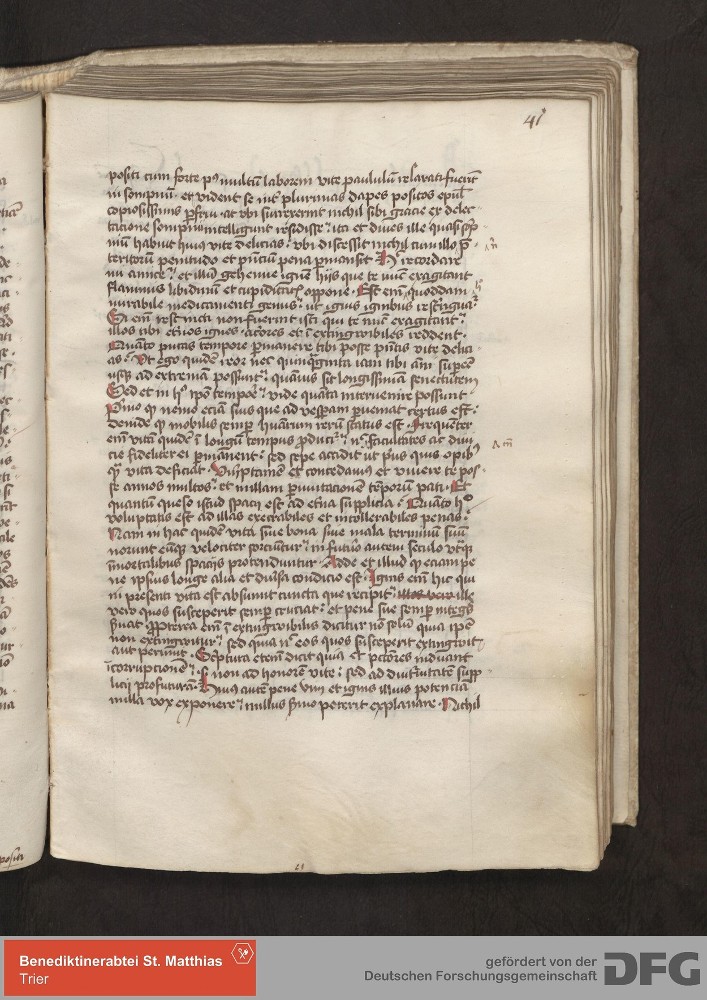 41
positi cum forte p9 multum laborem vite paululum relaxati fuerit
in sompnum · et vident se int plurimas dapes positos epul
copiosissimis pfrui · at vbi surrexerint nichil sibi gracie ex delec
tacione sompni intelligunt resedisse : ita et dives ille quasi
num habuit huius vite delicias : vbi discessit nichil cum illo p
teritorum penitudo et penarum pena permansit · recordare
mi amice : et illum gehenne ignem hijs que te nunc exagitant
flammis libidinum et cupiditatum oppone · Est enim quoddam
mirabile medicamenti genus : ut ignis ignibus restinguat
Si enim restincti non fuerint isti qui te nunc exagitant :
illos tibi eternos ignes · acriores et inextingwibiles reddent ·
Quanto putas tempore permanere tibi posse presentis vite delici
as : Vt ego quidem reor nec quinquaginta iam tibi anni superesse
usque ad extremam possunt : quamuis sit longissimam senectutem
Sed et in hoc ipso tempore : vide quanta intervenire possunt ·
Primo quod nemo eciam sius que ad vesperam perveniat certus est :
deinde quod mobilis semper humanarum rerum status est · Frequenter
enim vita quidem in longum tempus producitur : non facultates ac divi
cie fideliter ei permanent : sed sepe accidit ut prius quis opibus
quam vita deficiat · Verumptamen et concedamus et vivere te pos
se annos multos : et nullam permutacionem temporum pati · Et
quantum queso istud spacij est ad eterna supplicia : Quanto hec
voluptatis est ad illas execrabiles et intollerabiles penas :
Nam in hac quidem vita sive bona sive mala terminum suum
norunt eumque velociter sorciuntur : in futuro autem seculo utraque
immortalibus spacijs protenduntur · Adde et illud quod eciam pe
ne ipsius longe alia et diversa condicio est · Ignis enim hic qui
in presenti vita est absumit cuncta que recipit : illos vero ille
vero quos susceperit semper cruciat : et pene sue semper integros
servat Propterea enim inextingwibilis dicitur non solum quia ipse
non extingwitur : sed quia nec eos quos susceperit extingwit
aut perimit · Scriptura etenim dicit quia et peccatores induant
incorrupcionem : sed non ad honorem vite : sed ad diuturnitatem supp
licij profuturam : Huius autem pene vim et ignis illius potencia
nulla vox exponere : nullus sermo poterit explanare · Nichil
Benediktinerabtei St. Matthias
Trier
gefördert von der
Deutschen Forschungsgemeinschaft
DFG